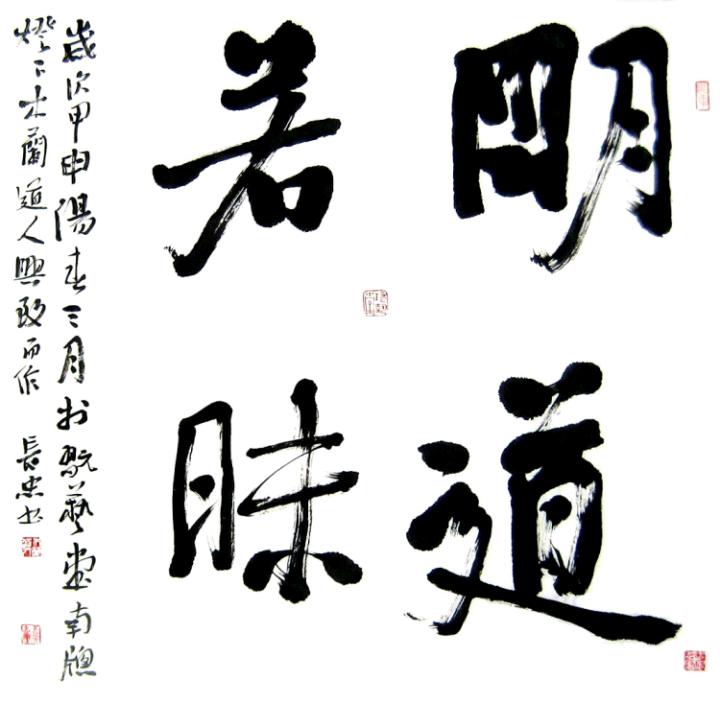 明道
若昧
歲次甲申陽春三月於翫藝堂南牕
燈下木蘭道人興致而作 長忠書